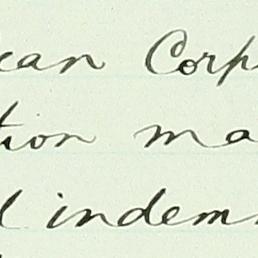 can Corp
tion ma
l indem